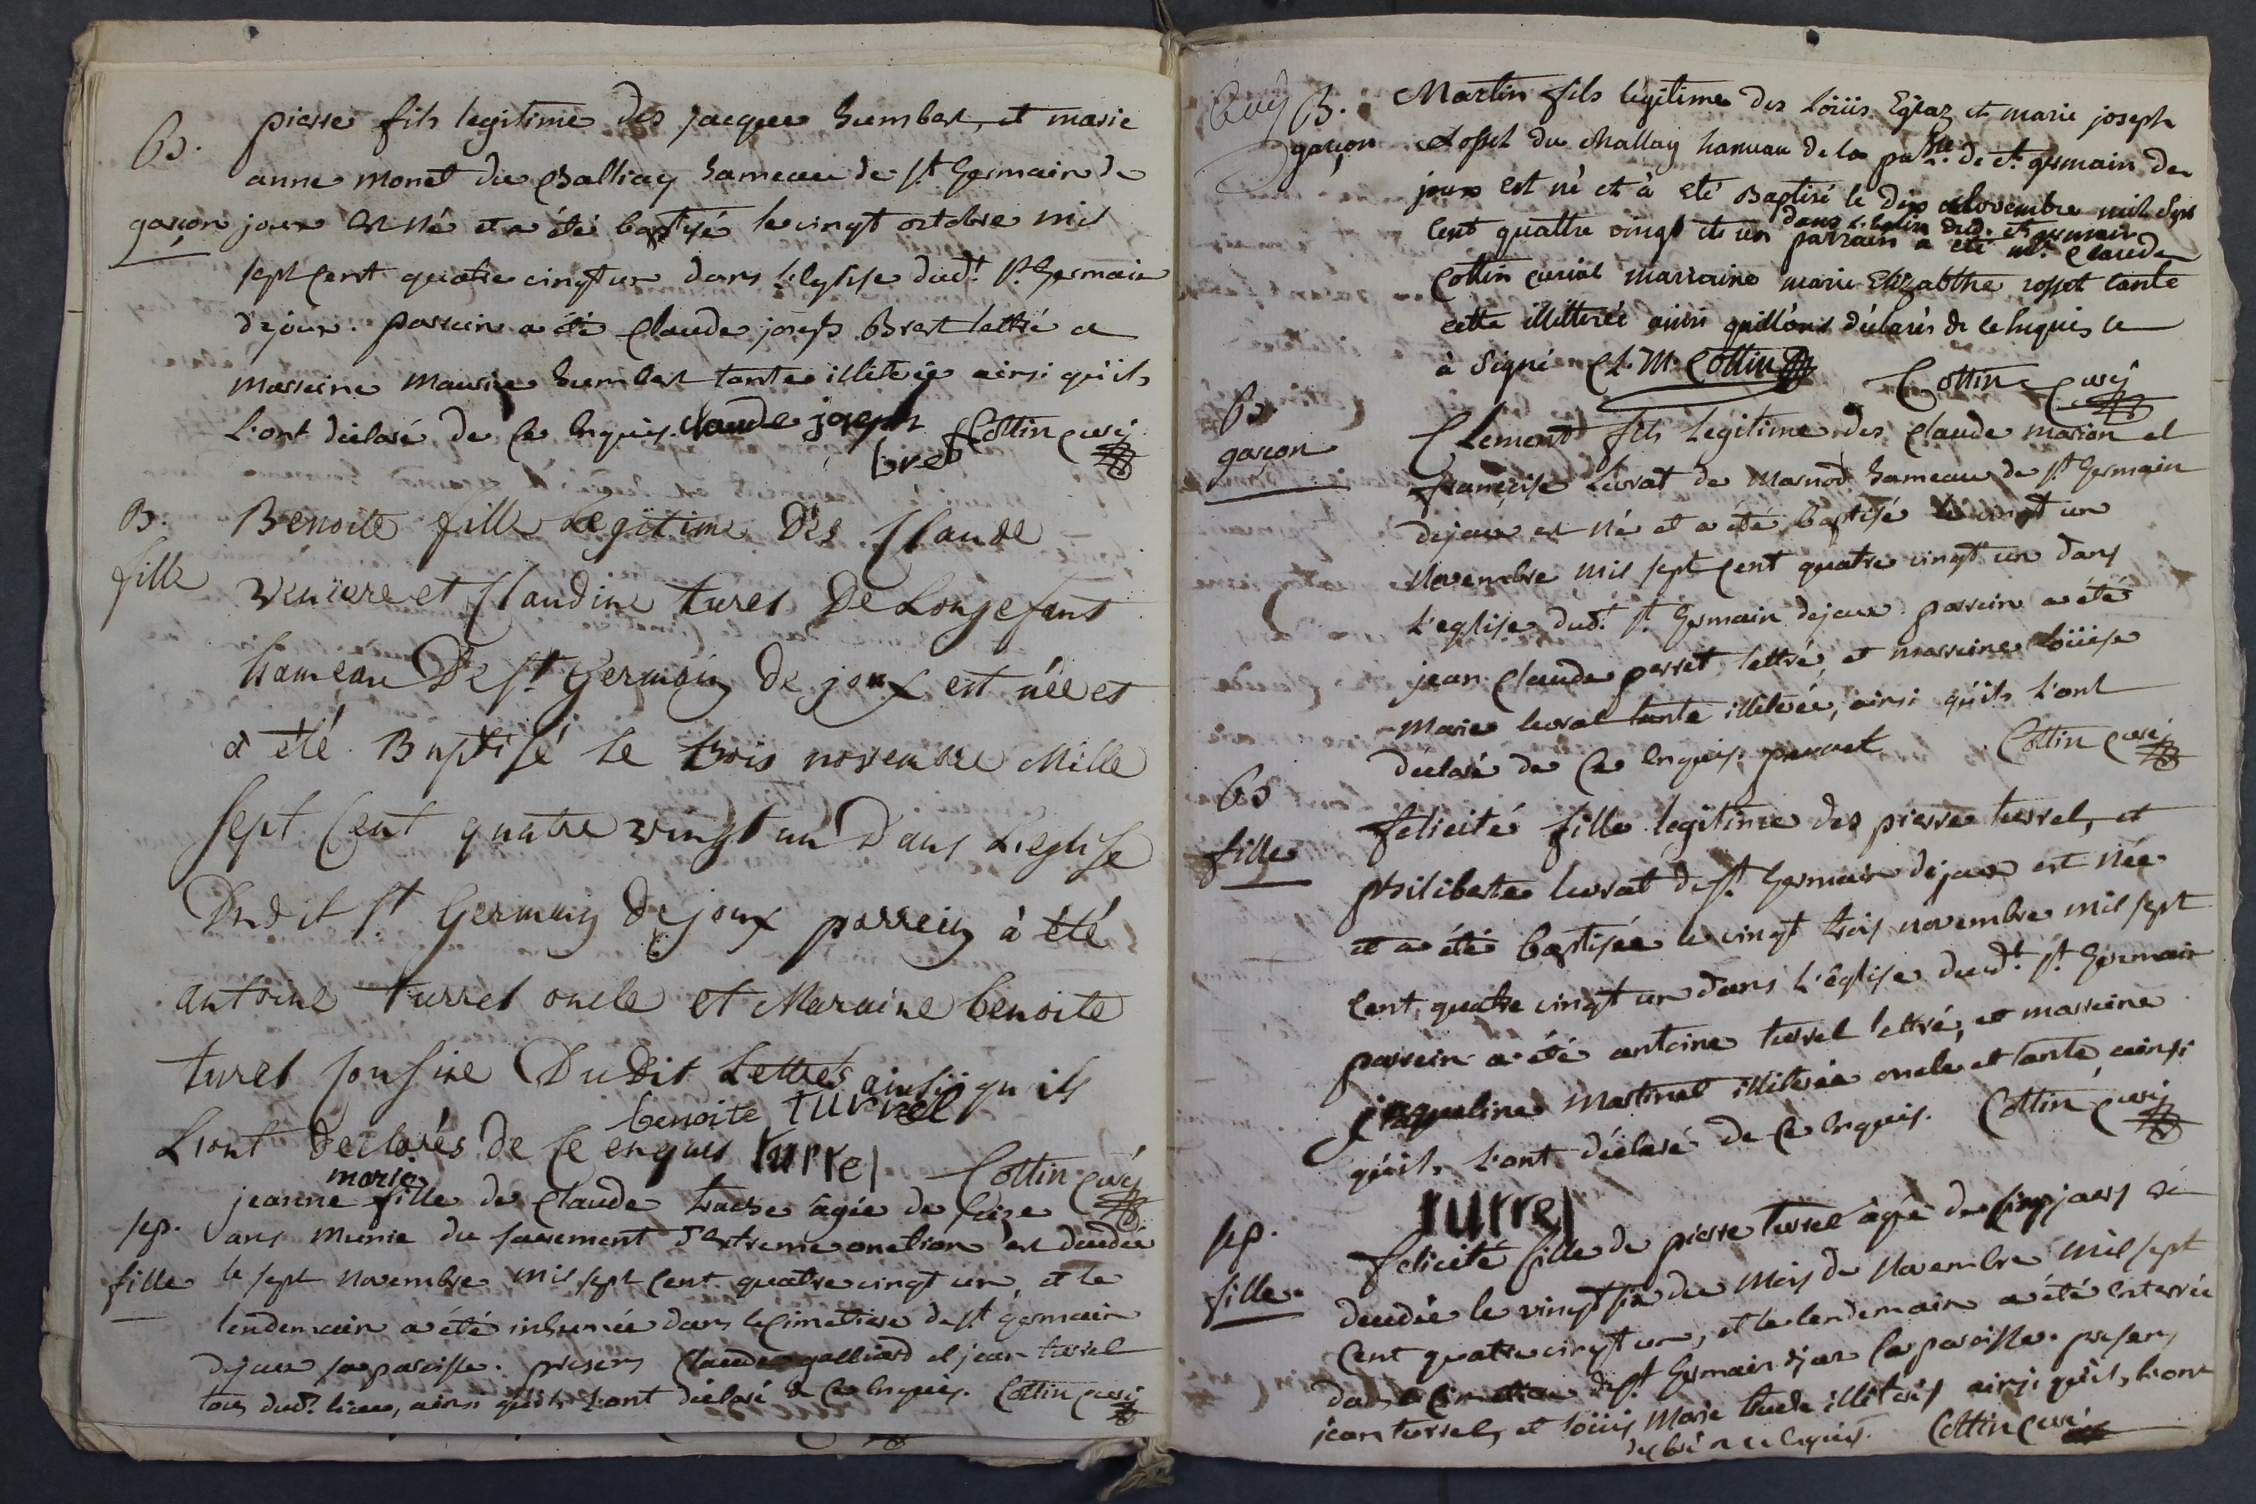 B.
garçon
pierre fils legitime des jacque humbert, et marie
anne monet du Challiay hameau de st Germain de
joux est né et a été baptisé le vingt octobre mil
sept cent quatre vingt un dans l'eglise dudt. st. Germain
dejoux. parrein a été claude joseph Bret lettré et
marreine maurise humbert tante illiterée ainsi qu'ils
l'ont déclaré de ce enquis. claude joseph Cottin curé
bret
B.
fille
Benoite fille Legitime Dés Claude
Veuïere et Claudine turel De Longefant
hameau De st Germain de joux est née et
a été Baptisé le trois novembre Mille
sept Cent quatre vingt un Dans L'eglise
Dudit st Germain De joux parrein à été
antoine turrel oncle et Maraine benoite
turel Dudit Lettrés ainsii qu ils
L'ont declarés de ce enquis benoite turrel
turrel Cottin curé
sep.
fille
jeanne marie fille de claude truche agée de seize
ans munie du sacrement d'extreme onction est decedée
le sept novembre mil sept cent quatre vingt un, et le
lendemain a été inhumée dans le cimetiere de st germain
dejoux sa paroisse. presens claude galliard et jean turrel
tous dudt. lieu, ainsi qu'ils l'ont déclaré de ce enquis. Cottin curé
B.
garçon
Martin fils legitime des Loüis Egraz et marie joseph
rosset du challay hameau de la psse. de st. germain de
joux est né et à eté Baptisé le dix Novembre mil sept
cent quattre vingt et un dans l'eglise dud. st germain
parrain a eté mr. claude
Cottin curial marraine marie Elizabthe rosset tante
cette illitterée ainsi quill'ont déclarés de ce enquis ce
à signé Cl. M. Cottin Cottin curé
B.
garçon
Clement fils legitime des claude marion et
françoise livrat de marnod hameau de st Germain
dejoux est né et a été baptisé le vingt un
novembre mil sept cent quatre vingt un dans
l'eglise dudt. st Germain dejoux parrein a été
jean claude perret lettré, et marreine loüise
marie levrat tante illiterée, ainsi qu'ils l'ont
déclaré de ce enquis. perret Cottin curé
B
fille
felicité fille legitime des pierre turrel, et
philiberte levrat de st. Germain dejoux est née
et a été baptisée le vingt trois novembre mil sept
cent, quatre vingt un dans l'église dudt. st Germain
parrein a été antoine turrel lettré, et marreine
jaqueline martinet illiterée oncle et tante, ainsi
qu'ils l'ont déclaré de ce enquis. Cottin curé
turrel
sep.
fille
felicité fille de pierre turrel agée de cinq jours
decedée le vingt six du mois de novembre mil sept
cent quatre vingt un, et le lendemain a été enterrée
dans le cimetiere de st. Germain dejoux sa paroisse. presens
jean turrel, et loüis marie illiterés ainsi qu'ils l'ont
declaré de ce enquis. Cottin curé